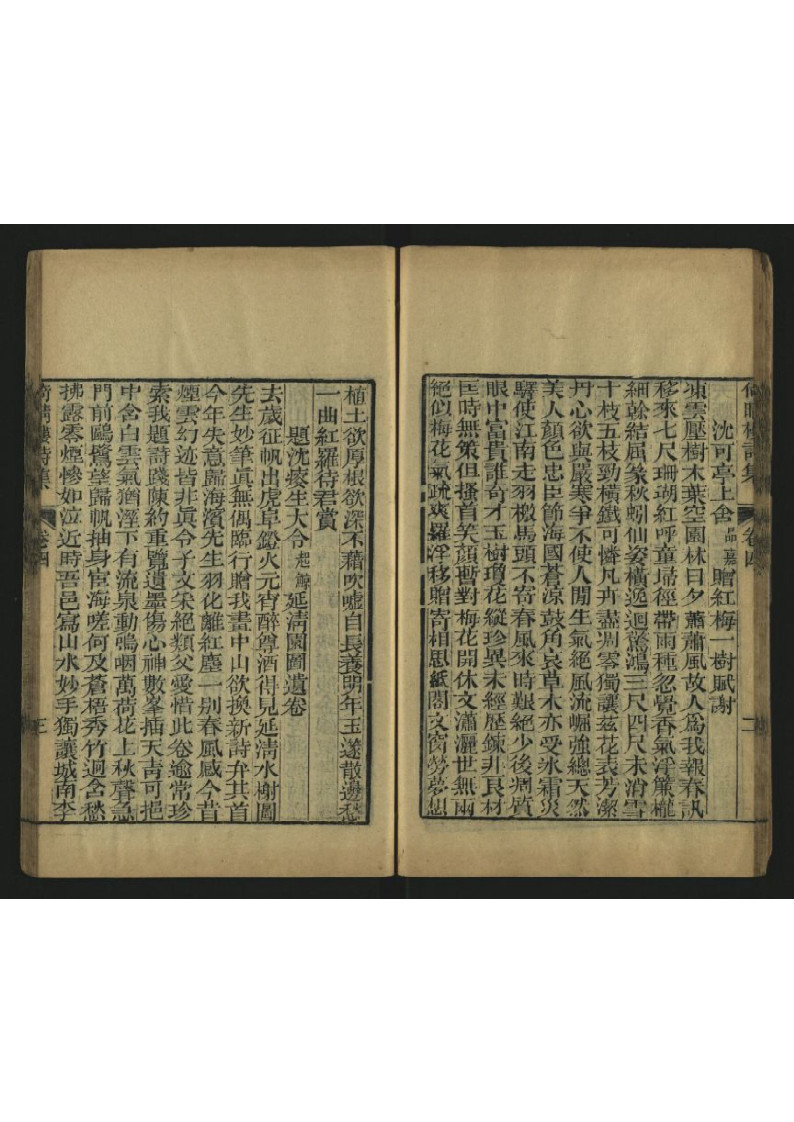 沈可亭上舍品嘉贈紅梅一樹賦謝
凍雲壓樹木葉空園林日夕蕭蕭風故人爲我報春訊
移來七尺珊瑚紅呼童埽徑帶雨種忽覺香氣浮簾櫳
細幹結屈篆秋蚓仙姿橫逸迴驚鴻三尺四尺未消雪
十枝五枝勁橫鐵可憐凡卉盡凋零獨讓茲花表芳潔
丹心欲與嚴寒爭不使人閒生氣絕風流崛強總天然
美人顏色忠臣節海國蒼涼鼓角哀草木亦受冰霜災
驛使江南走羽檄馬頭不寄春風來時艱絕少後凋質
眼中富貴誰奇才玉樹瓊花縱珍異未經歷鍊非良材
匡時無策但搔首笑顏暫對梅花開休文瀟灑世無兩
絕似梅花氣疏爽羅浮移贈寄相思紙閣文窗勞夢想
倚晴樓詩集
卷四
二
植土欲厚根欲深不藉吹噓自長養明年玉邃散邊愁
一曲紅羅待君賞
題沈痠生大令起鰤延清園圖遺卷
去歲征帆出虎阜鐙火元宵醉尊酒得見延清水榭圖
先生妙筆眞無偶臨行贈我畫中山欲換新詩弁其首
今年失意歸海濱先生羽化離紅塵一别春風感今昔
煙雲幻迹皆非眞令子文宋絕類父愛惜此卷逾常珍
索我題詩踐陳約重覽遺墨傷心神數峯插天靑可挹
中含白雲氣猶溼下有流泉動鳴咽萬荷花上秋聲急
門前鷗鷺望歸帆抽身宦海嗟何及蒼梧秀竹迥含愁
拂露零煙慘如泣近時吾邑寫山水妙手獨讓城南李
倚晴樓詩集
卷四
三